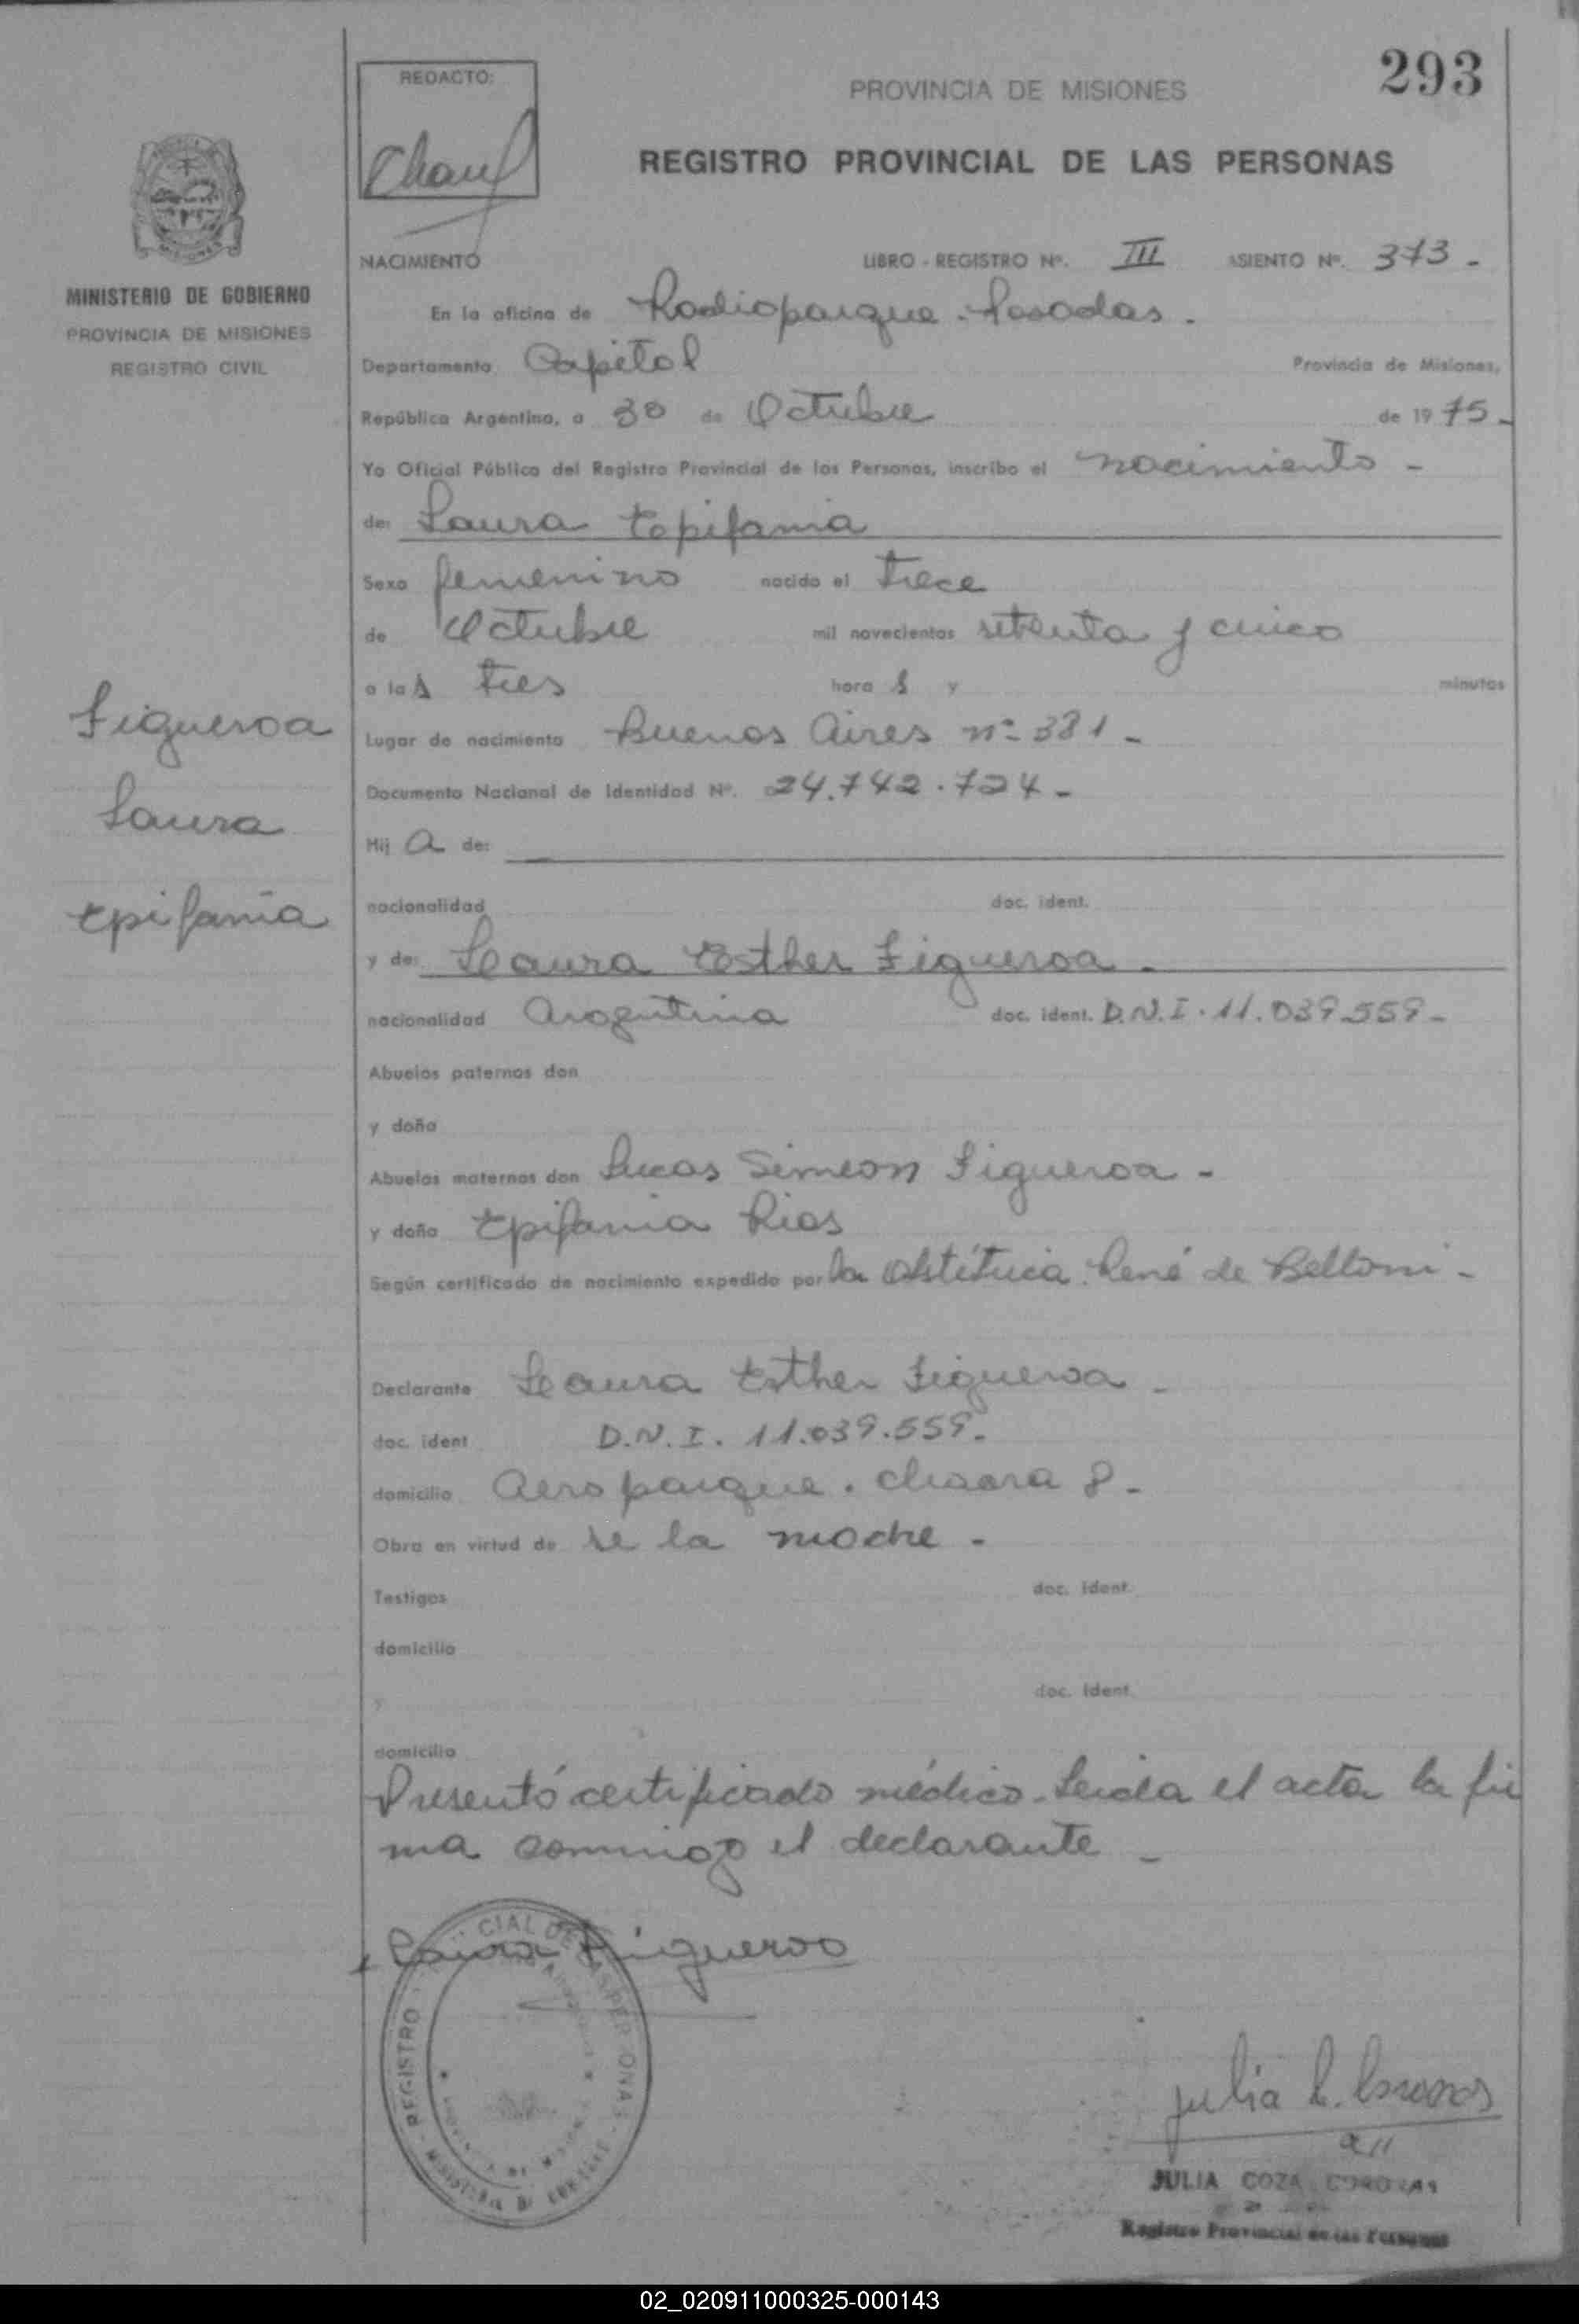 293
REDACTO:
PROVINCIA DE MISIONES
REGISTRO PROVINCIAL DE LAS PERSONAS
MINISTERIO DE GOBIERNO
PROVINCIA DE MISIONES
REGISTRO CIVIL
NACIMIENTO LIBRO - REGISTRO Nº. III ASIENTO Nº. 373 -
En la oficina de Radioparque - Posadas.
Departamento Capital Provincia de Misiones,
República Argentina, a 30 de Octubre de 1975 -
Yo Oficial Público del Registro Provincial de las Personas, inscribo el nacimiento -
de: Laura Epifania
Sexo femenino nacido el trece
de Octubre mil novecientos setenta y cinco
a las tres hora s y minutos
Lugar de nacimiento Buenos Aires nº 381 -
Documento Nacional de Identidad Nº. 24.742.724 -
Hij a de:
nacionalidad doc. ident.
y de: Leaura Esther Figueroa -
nacionalidad Argentina doc. ident. D.N.I. 11.039.559 -
Abuelos paternos don
y doña
Abuelos maternos don Lucas Simeon Figueroa -
y doña Epifania Rios
Según certificado de nacimiento expedido por la Obstétrica René de Belloni -
Declarante Leaura Esther Figueroa -
doc. ident D.N.I. 11.039.559.
domicilio Aeroparque. chacra 8 -
Obra en virtud de se la madre -
Testigos doc. ident.
domicilio
y doc. ident.
domicilio
Presentó certificado médico. Leida el acta la fir
ma conmigo el declarante -
Figueroa
Laura
Epifania
Laura Figueroa
REGISTRO
JULIA COZA
Registro Provincial de las Personas
02_020911000325-000143